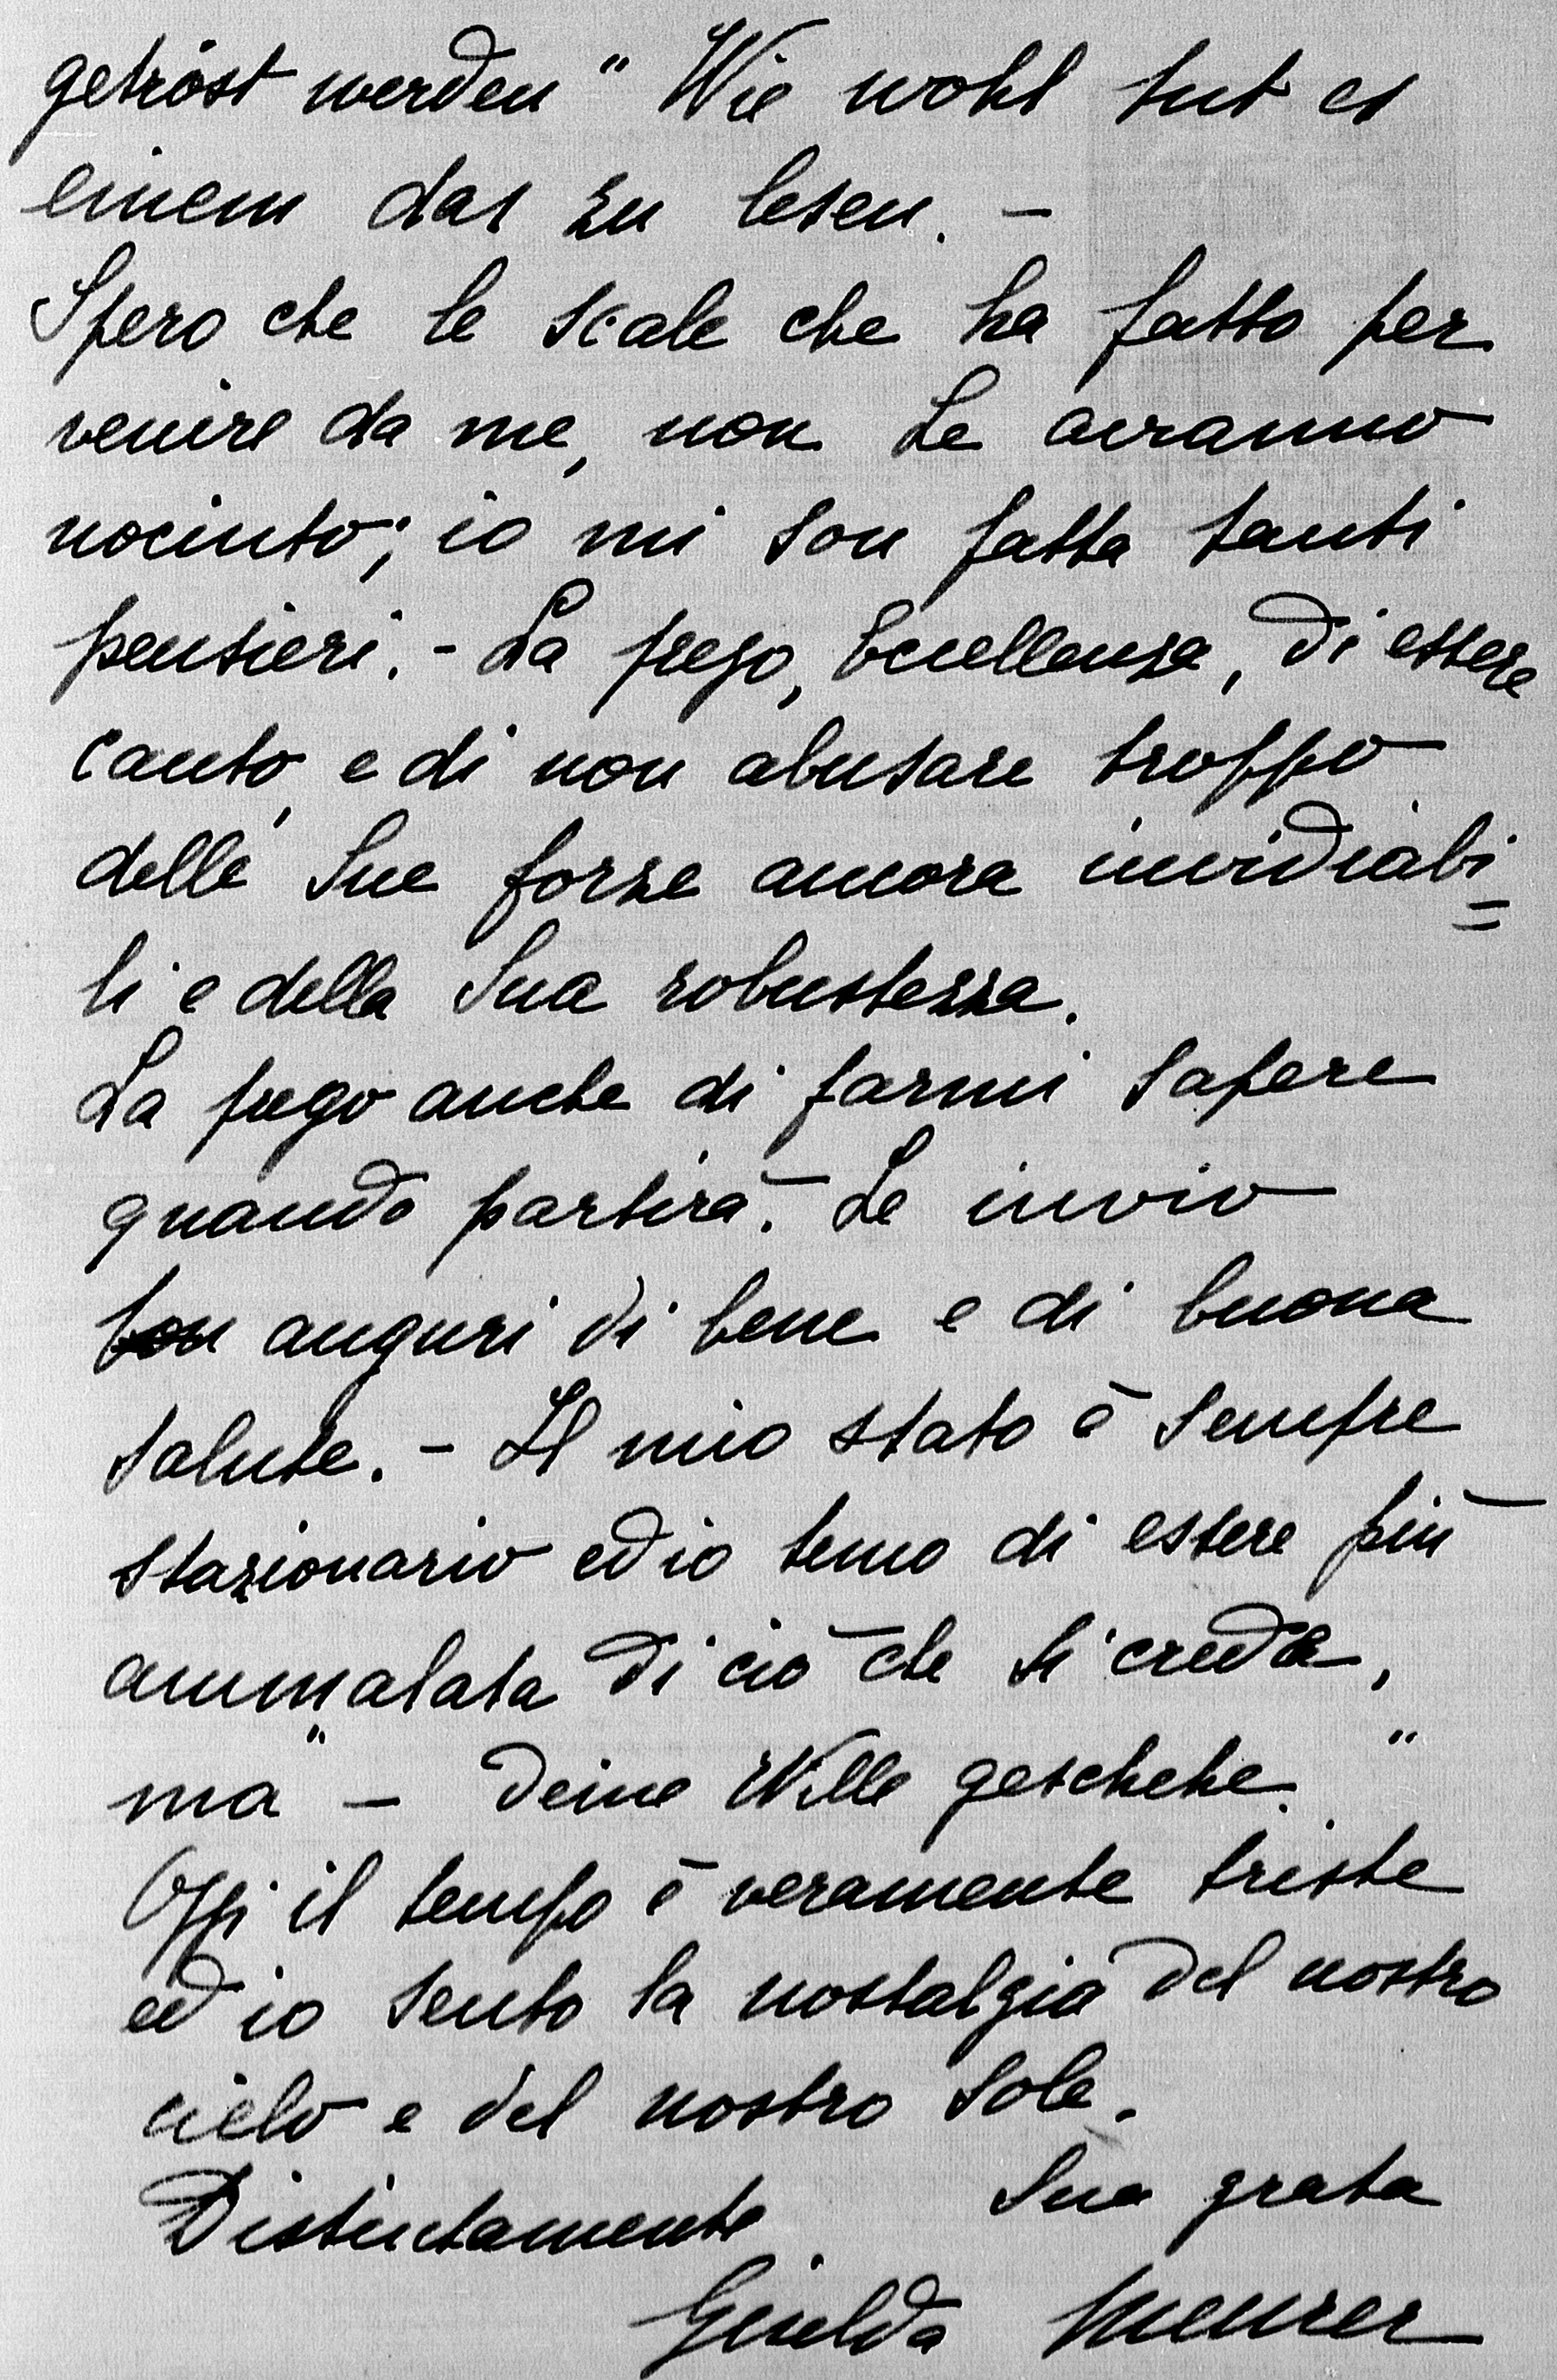 getröst werden" Wie wohl tut es
einem das zu lesen. -
Spero che le scale che ha fatto per
venire da me, non Le avranno
nociuto; io mi son fatta tanti
pensieri. - La prego, Eccellenza, di essere
cauto, e di non abusare troppo
delle Sue forze ancora invidiabi=
li e della Sua robustezza.
La prego anche di farmi sapere
quando partirà. - Le invio
auguri di bene e di buona
salute. - Il mio stato è sempre
stazionario ed io temo di essere più
ammalata di ciò che si creda,
ma - "Deine Wille geschehe."
Oggi il tempo è veramente triste
ed io sento la nostalgia del nostro
cielo e del nostro sole.
Distintamente Sua grata
Giselda Meurer